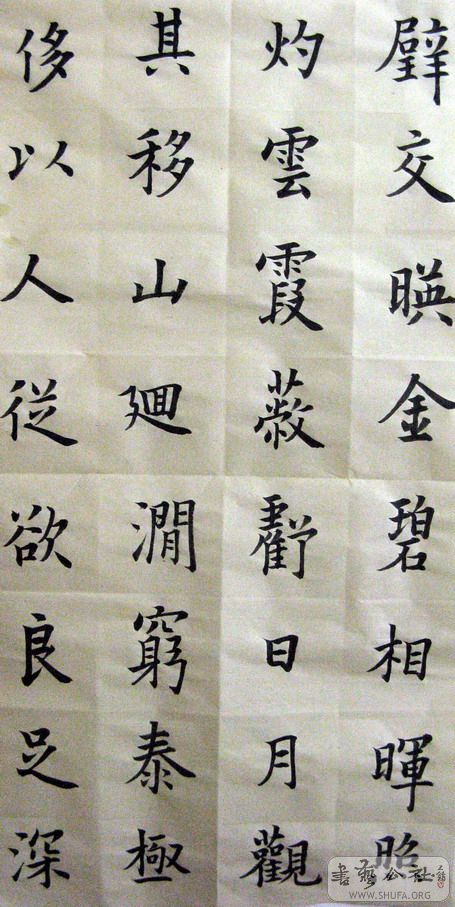 璧交暎金碧相暉照
灼雲霞蔽虧日月觀
其移山廻澗窮泰極
侈以人従欲良足深
書藝公社
WWW.SHUFA.ORG